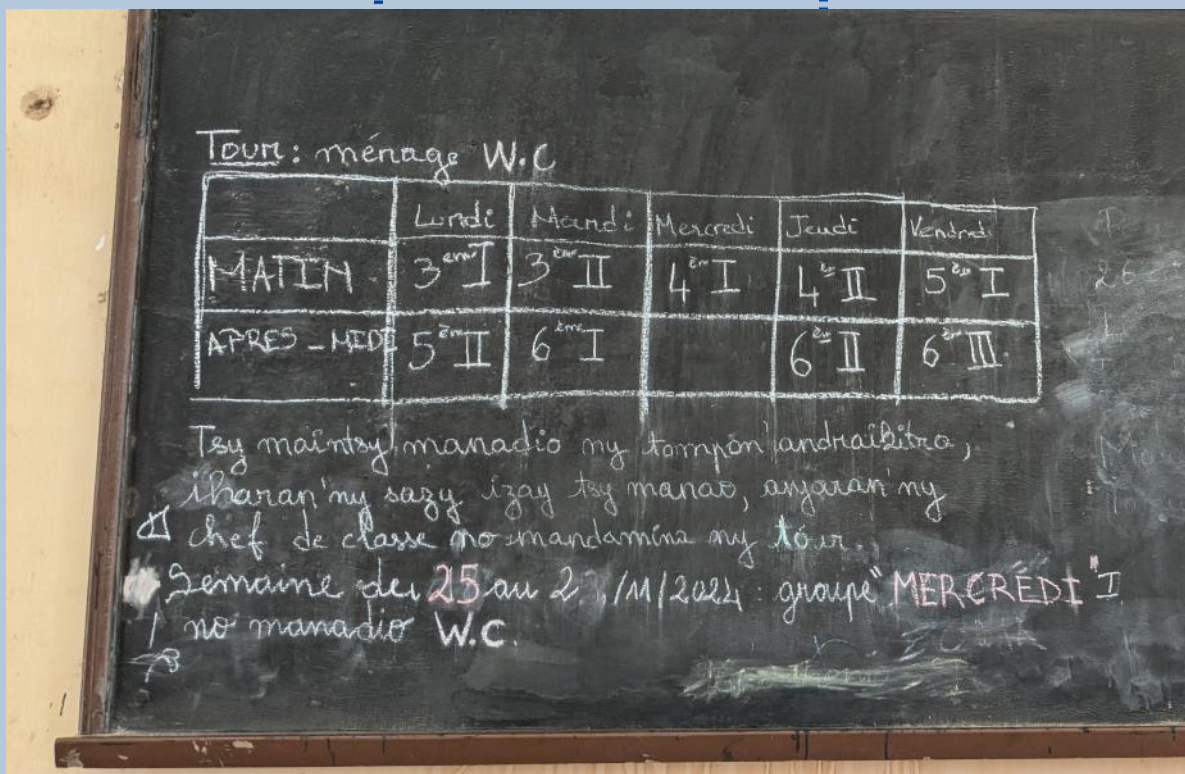 Tour : ménage W.C
Lundi Mardi Mercredi Jeudi Vendredi
MATIN 3ème I 3ème II 4èm I 4è II 5èm I
APRES - MIDI 5èm II 6ème I 6è II 6è III
Tsy maintsy manadio ny tompon'andraikitra,
iharan'ny sazy izay tsy manao, anjaran'ny
chef de classe no mandamina ny tour.
Semaine du 25 au 2 /11/2024 : groupe "MERCREDI" I
no manadio W.C.